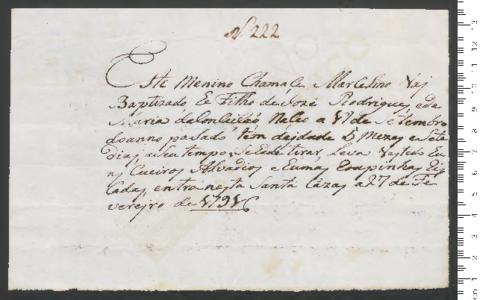 N. 222
Este Menino Chamace Marcelino Vaj
Baptizado he Filho de Jozé Rodrigues e de
Maria da Conceicaõ Naceo a 17 de Setembro
do anno pasado tem deidade 5 Mezes e Sete
Dias a seu tempo Se ade tirar Leva Vestido
Cueiros e humas Roupinhas
entra nesta Santa Caza a 27 de Fe
vereiro de 1791